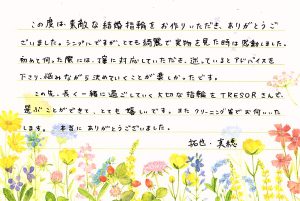 この度は、素敵な結婚指輪をお作りいただき、ありがとうご
ざいました。シンプルですが、とても綺麗で実物を見た時は感動しました。
初めて伺った際には、丁寧に対応していただき、迷っているとアドバイスを
下さり、悩みながら決めていくことが楽しかったです。
この先、長く一緒に過ごしていく大切な指輪をTRESORさんで、
選ぶことができて、とても嬉しいです。また クリーニング等でお伺いいた
します。 本当に ありがとうございました。
拓也・実穂